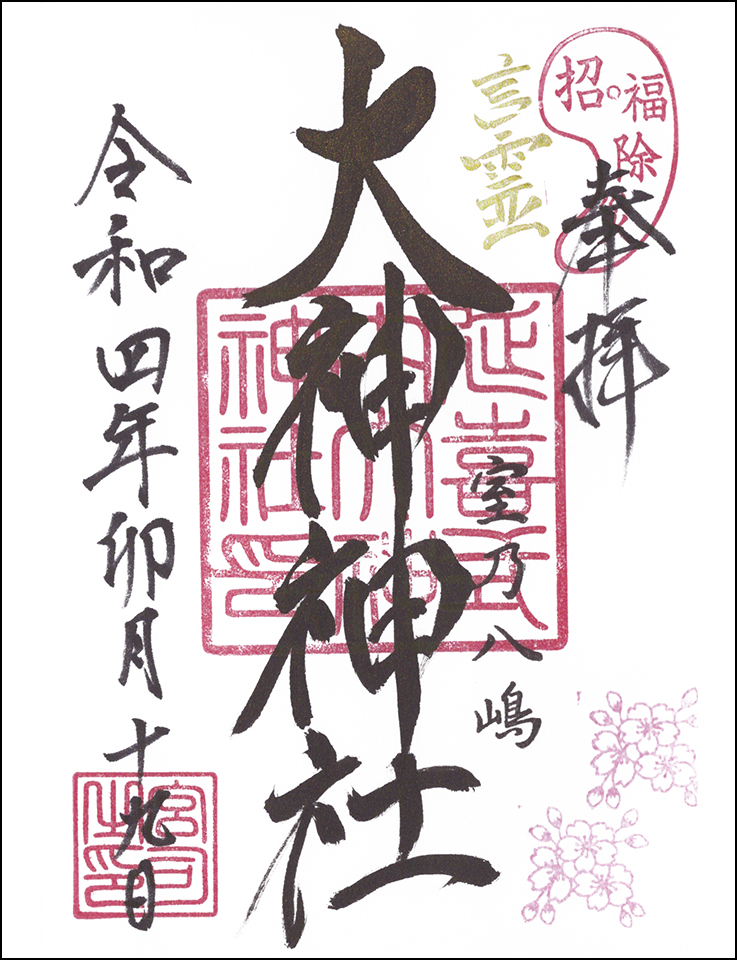 招福除
奉拝
言霊
室乃八嶋
延喜式
内大神
神社印
大神神社
令和四年卯月十九日
宮司
之印